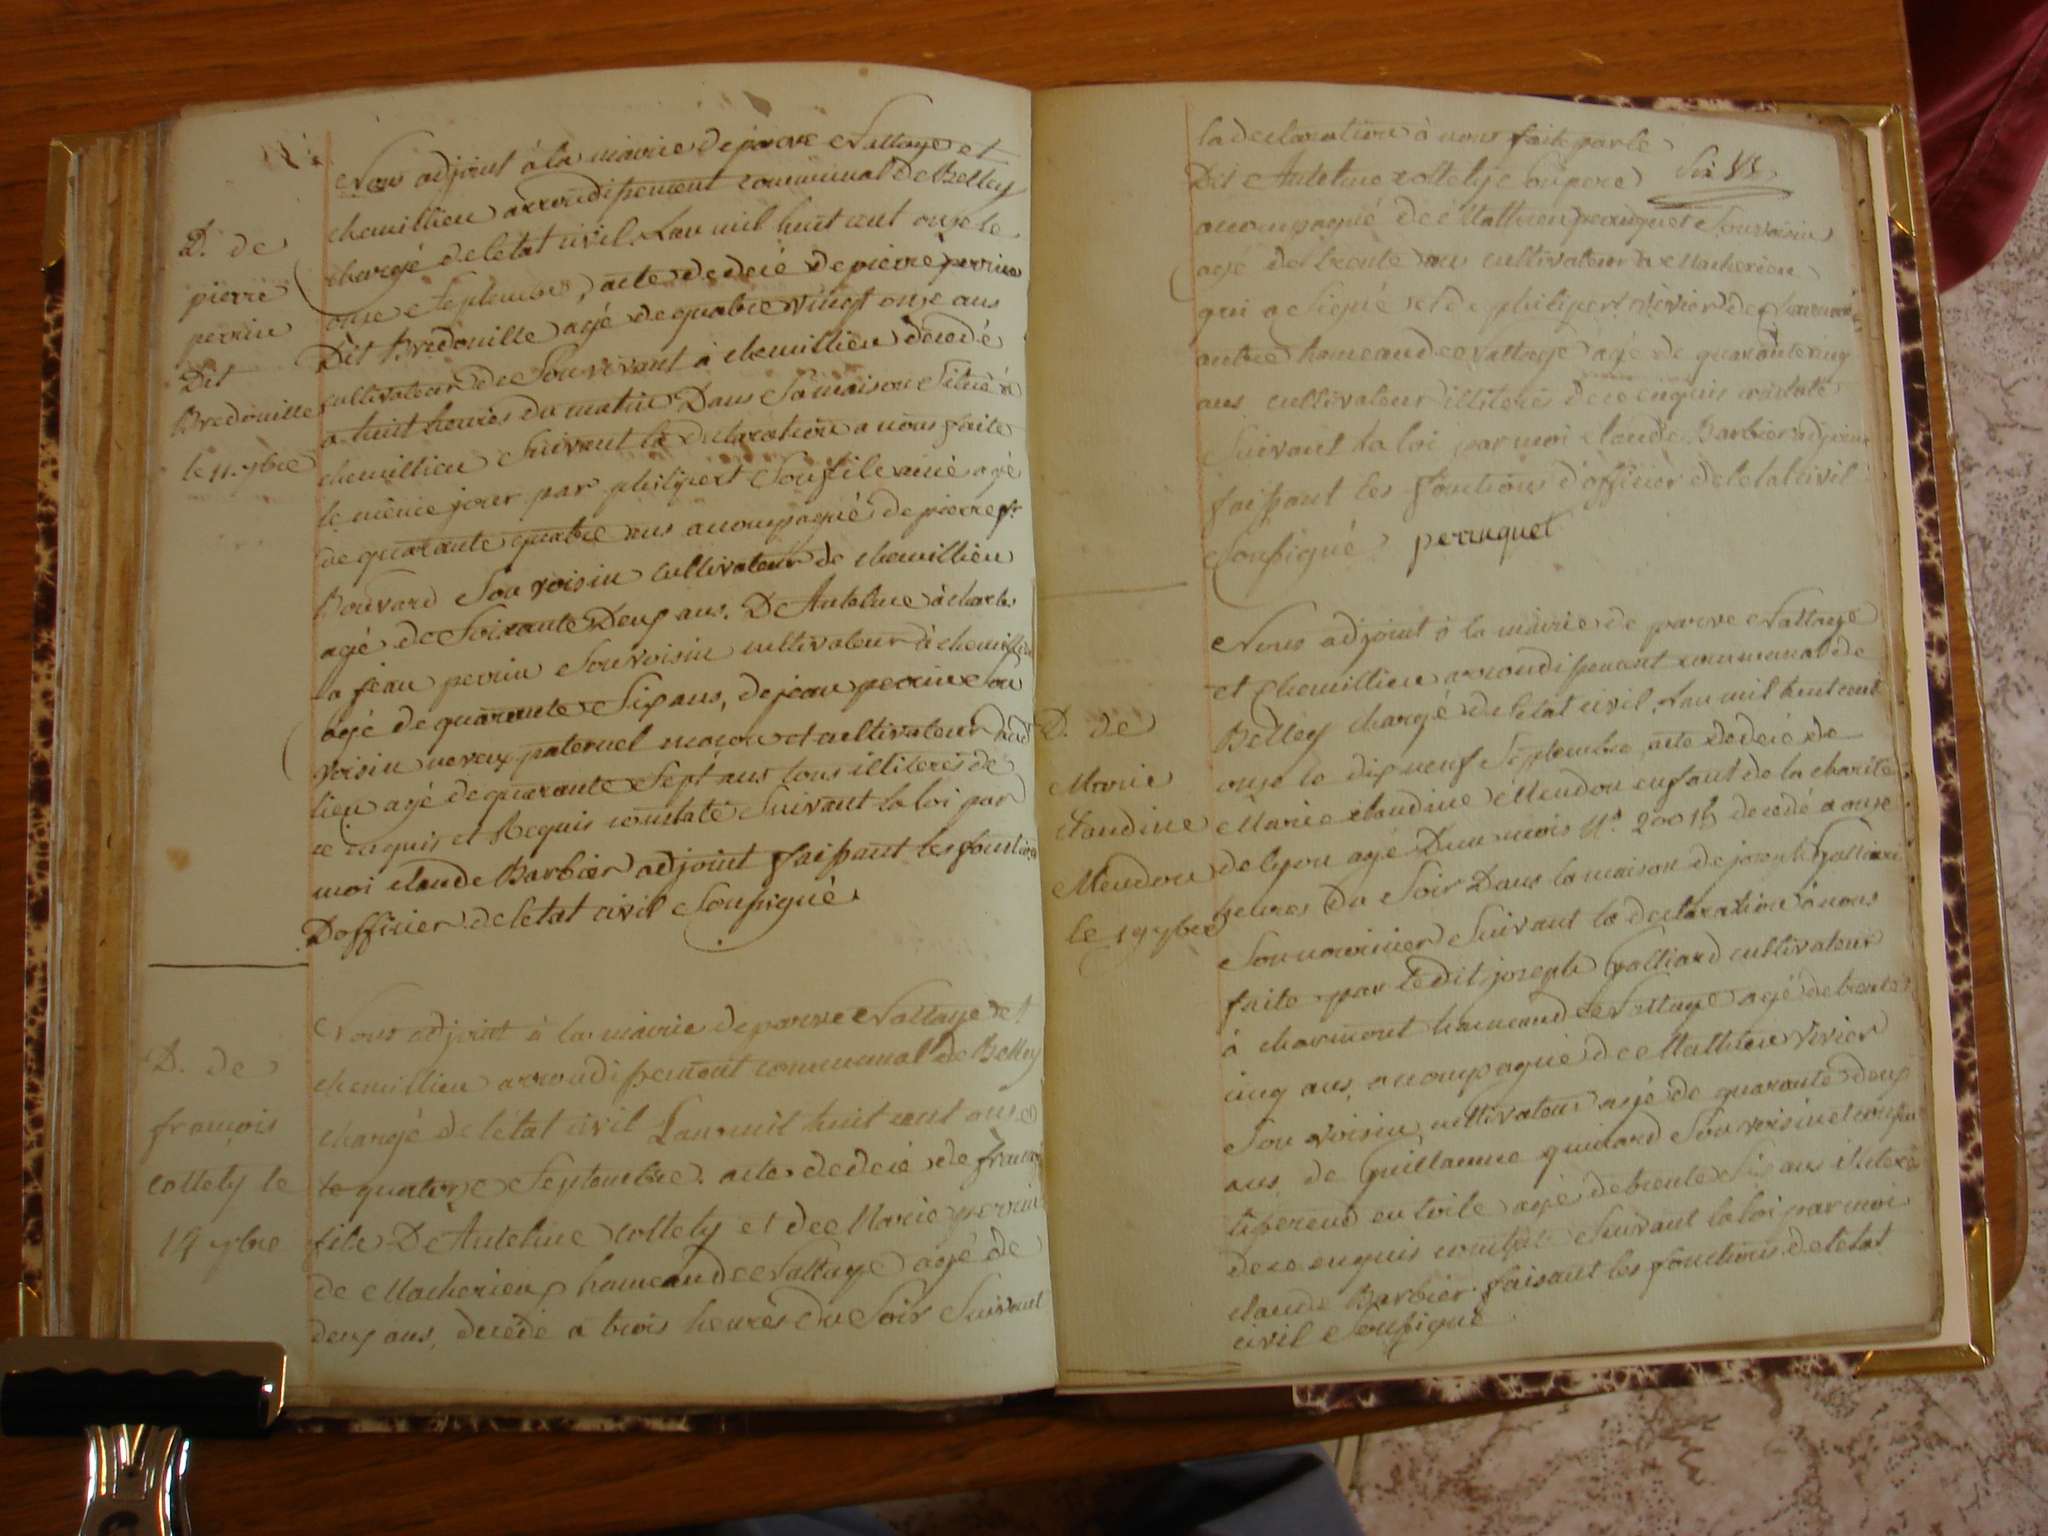 D. de
pierre
perrin
Dit
Bredouille
le 11. 7bre
Nous adjoint à la mairie de parve Nattage et
chemillieu arrondissement communal de Belley
chargé de letat civil. Lan mil huit cent onze le
onze Septembre, acte de decè de pierre perrin
Dit Bredouille agé de quatre vingt onze ans
cultivateur de Son vivant à chemillieu décedé
a huit heures du matin Dans Sa maison Située à
chemillieu Suivant la declaration a nous faite
le même jour par philipert Son fil ainé agé
de quarante quatre ans acompagné de pierre
Bouvard Son voisin cultivateur de chemillieu
agé de Soixante Deux ans. D'Antelme à charle
a jean perrin Son voisin cultivateur à chemillieu
agé de quarante Six ans, de jean perrin Son
voisin neveux paternel maçon et cultivateur aud
lieu agé de quarante Sept ans tous illiterés de
ce enquis et Requis constaté Suivant la loi par
moi claude Barbier adjoint faissant les fonctions
D'officier de letat civil Soussigné.
D. de
françois
collety le
14 7bre
Nous adjoint à la mairie de parve Nattage et
chemillieu arrondissement communal de Belley
chargé de létat civil Lan mil huit cent onze
le quatorze Septembre. acte de decè de françois
fils D'Antelme Collety et de Marie perrin
de Macherieux hameau de Nattage agé de
deux ans, decédé a trois heures du Soir Suivant
la declaration à nous faite par le
Dit Antelme collety Son pere Six VI
acompagné de Mathieu perruquet Son voisin
agé de trente ans cultivateur a Macherieu
qui a Signé et de philipert vivier de
autre hameau de Nattage agé de quarante cinq
ans cultivateur illiterés de ce enquis constaté
Suivant la loi par moi claude Barbier adjoint
faissant les fonctions d'officier de letat civil
Soussigné perruquet
D. de
Marie
claudine
Mendon
le 19 7bre
Nous adjoint à la mairie de parve Nattage
et chemillieu arrondissement communal de
Belley chargé de letat civil. Lan mil huit cent
onze le dix neuf Septembre, acte de decè de
Marie claudine Mendon enfant de la charité
de lyon agé Dun mois N°. decedé a onze
heures du Soir Dans la maison de joseph Galliard
Son nourricier Suivant la declaration à nous
faite par le dit joseph Galliard cultivateur
à charmont hameau de Nattage agé de trente
cinq ans, acompagné de Mathieu Vivier
Son voisin cultivateur agé de quarante deux
ans de Guillaume guinard Son voisin et cousin
tisserand en toile agé de trente Six ans illiterés
de ce enquis constaté Suivant la loi par moi
claude Barbier faisant les fonctions de letat
civil Soussigné